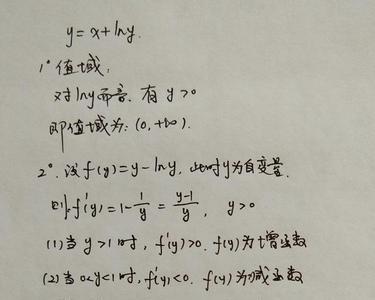 y = x + lny.
1° 值域:
对lny而言, 有 y>0
即值域为: (0, +∞).
2°. 设 f(y) = y - lny, 此时y为自变量.
则: f'(y) = 1 - 1/y = (y-1)/y, y>0
(1) 当 y>1时, f'(y)>0. f(y)为增函数
(2) 当 0<y<1时, f'(y)<0. f(y)为减函数